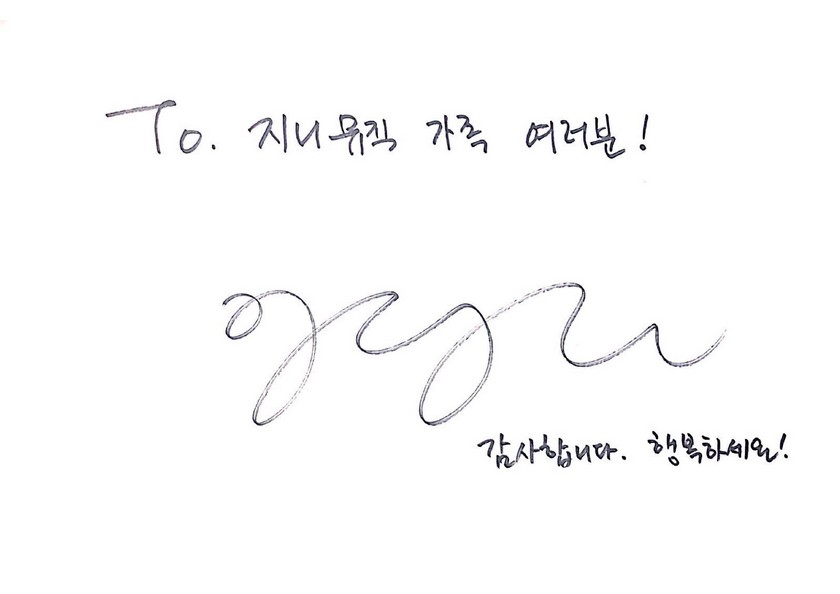 To. 지니뮤직 가족 여러분!
감사합니다. 행복하세요!